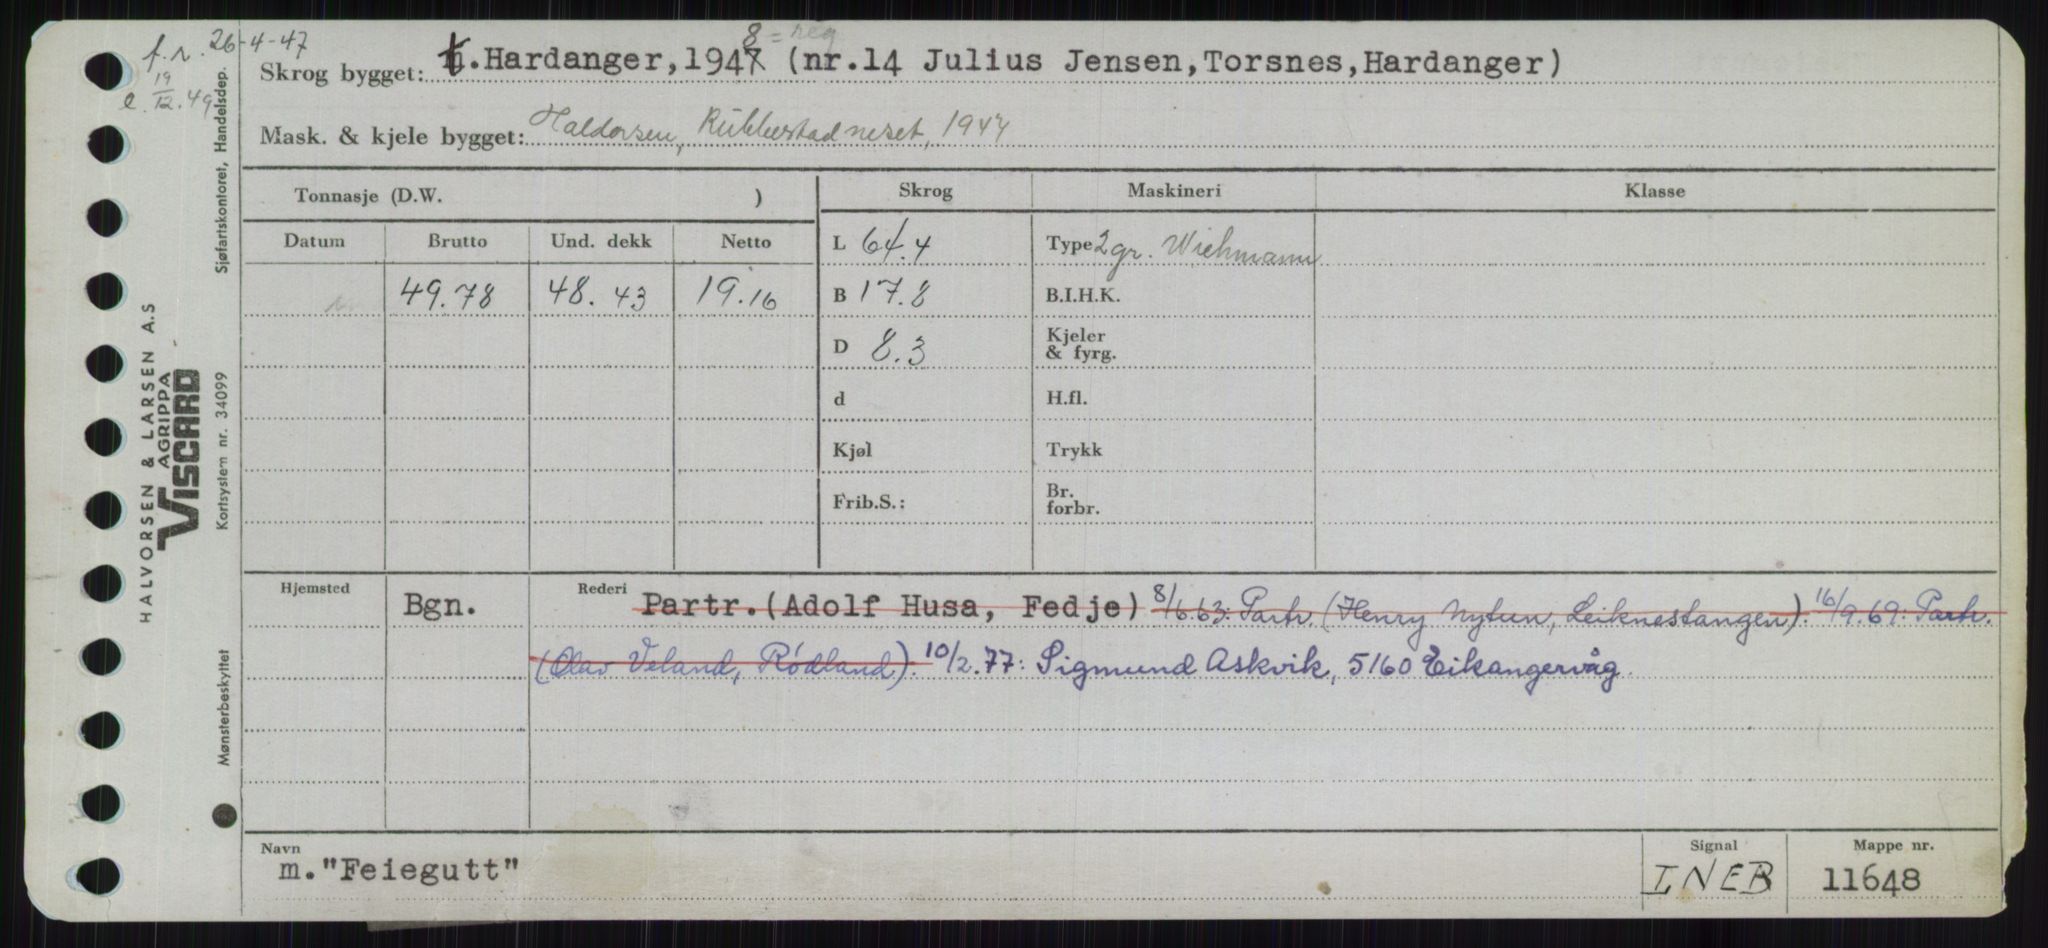 f.r. 26-4-47
e. 19/12.49
8 = reg
Skrog bygget: t.Hardanger,1947 (nr.14 Julius Jensen,Torsnes,Hardanger)
Mask. & kjele bygget: Haldorsen, Rubbestadneset, 1947
Tonnasje (D.W. )
Skrog Maskineri Klasse
Datum Brutto Und. dekk Netto
L 64.4 Type 2 gr. Wichmann
49.78 48.43 19.16
B 17.8 B.I.H.K.
D 8.3 Kjeler
& fyrg.
d H.fl.
Kjøl Trykk
Frib.S.: Br.
forbr.
Hjemsted Bgn. Rederi Partr.(Adolf Husa, Fedje) 8/6.63: Partr. (Henry Nytun, Leiknestangen). 16/9.69: Partr.
(Olav Veland, Rødland). 10/2.77: Sigmund Askvik, 5160 Eikangervåg
Navn Signal Mappe nr.
m."Feiegutt" INEB 11648
HALVORSEN & LARSEN A.S
AGRIPPA
VISCARD
Sjøfartskontoret, Handelsdep.
Kortsystem nr. 34099
Mønsterbeskyttet